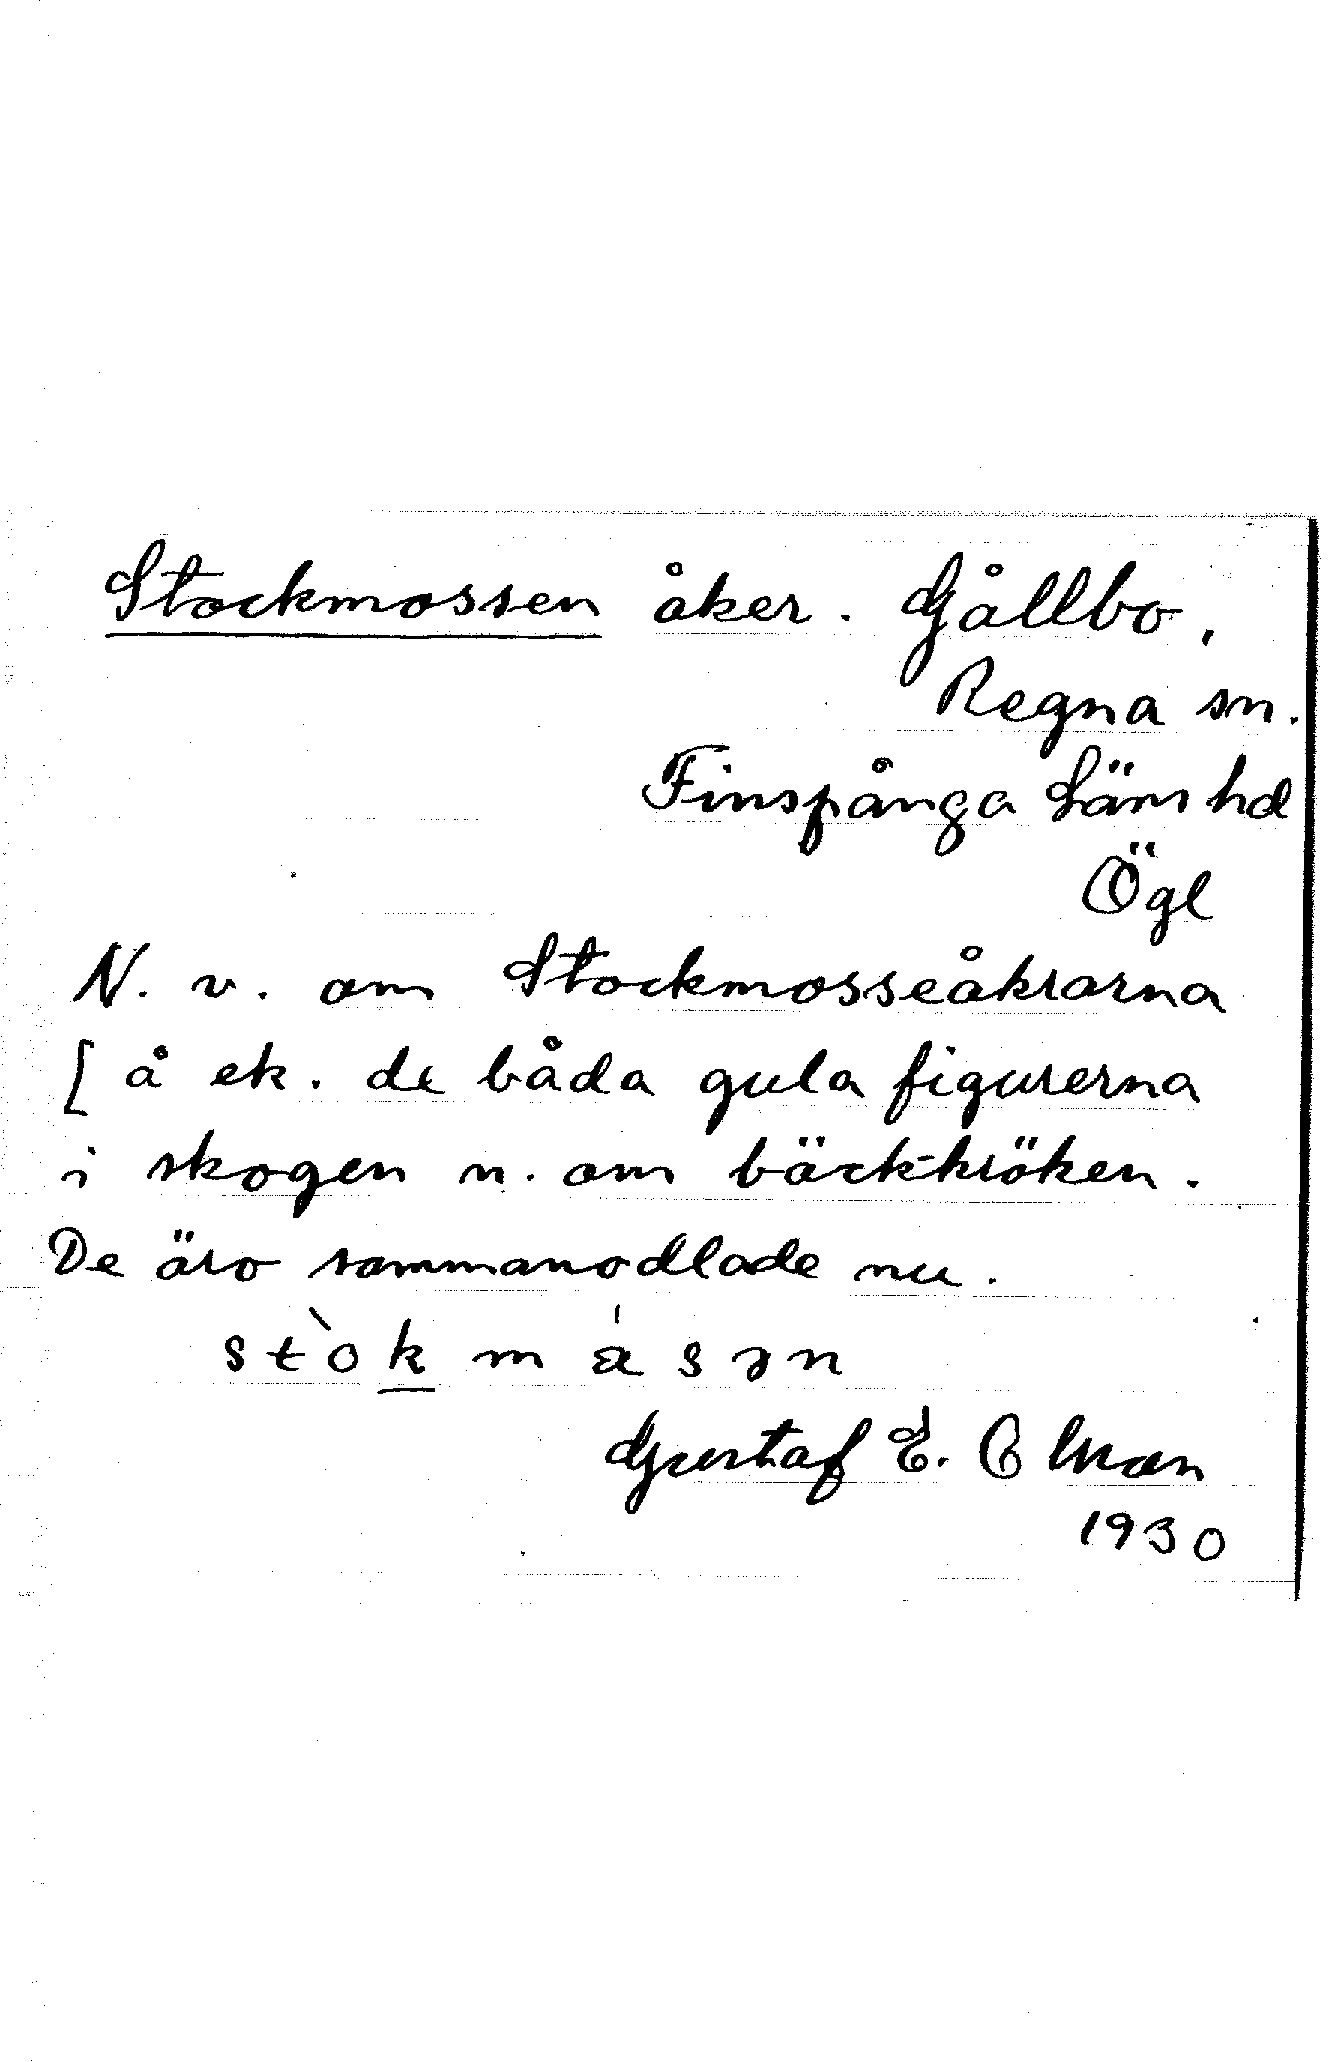 Stockmossen åker. Gållbo,
Regna sn.
Finspånga Läns hd
Ögl
N. v. om Stockmosseåkrarna
[ å ek. de båda gula figurerna
i skogen n. om bäck-kröken.
De äro sammanodlade nu.
stòk másən
Gustaf E.
1930